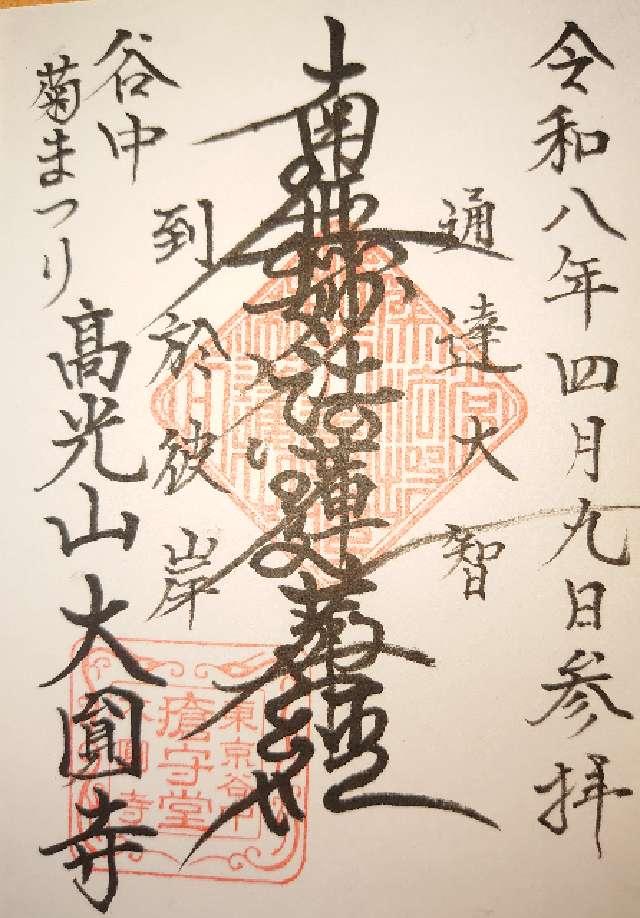 令和八年四月九日参拝
通達大智
南無妙法蓮華経
到於彼岸
谷中
菊まつり
高光山大圓寺
東京谷中
瘡守堂
大圓寺